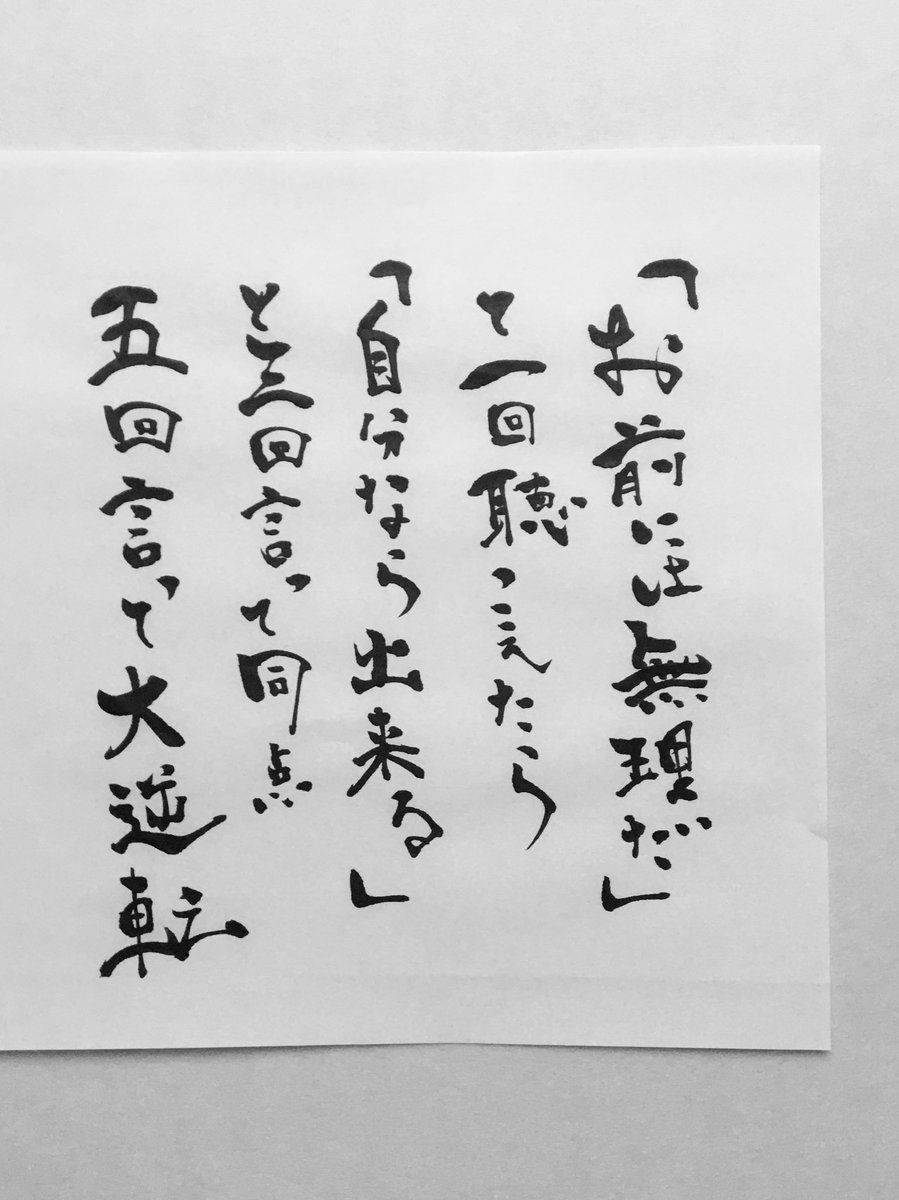 「お前には無理だ」
と一回聴こえたら
「自分なら出来る」
と三回言って同点
五回言って大逆転